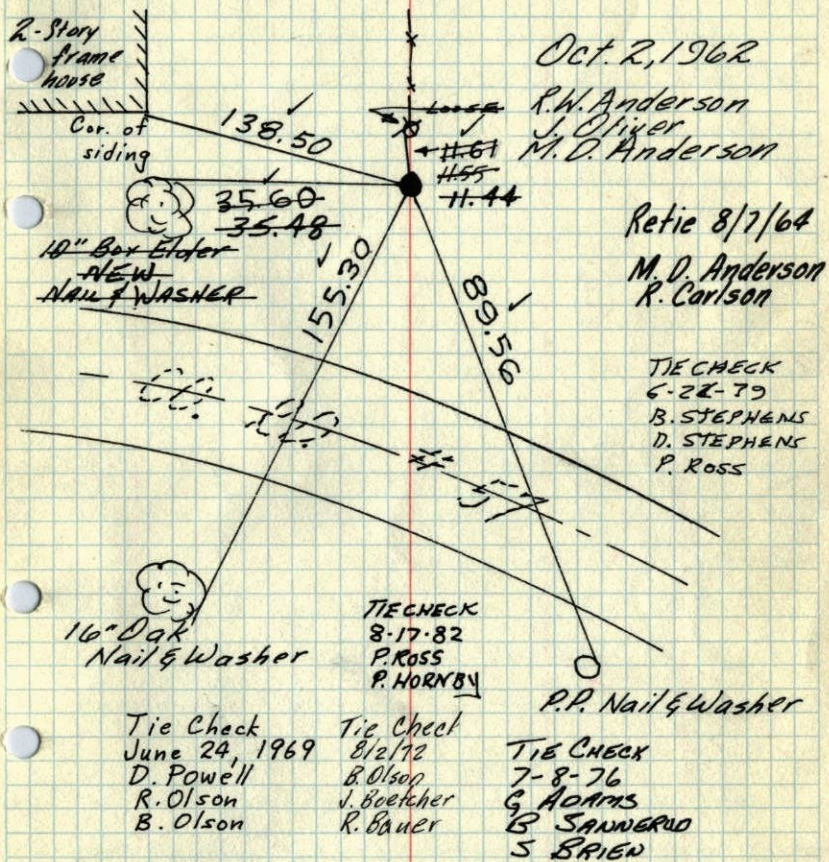 2-Story
frame
house
Cor. of
siding
138.50
LOOSE
11.61
11.55
11.44
Oct. 2, 1962
R.W. Anderson
J. Oliver
M.D. Anderson
35.60
35.48
10" Box Elder
NEW
NAIL & WASHER
Retie 8/7/64
M.D. Anderson
R. Carlson
155.30
89.56
TIE CHECK
B. STEPHENS
D. STEPHENS
P. ROSS
16" Oak
Nail & Washer
TIE CHECK
8-17-82
P. ROSS
P. HORNBY
P.P. Nail & Washer
Tie Check
June 24, 1969
D. Powell
R. Olson
B. Olson
Tie Check
8/2/72
B. Olson
J. Boetcher
R. Bauer
TIE CHECK
7-8-76
G ADAMS
B SANNERUD
S BRIEN